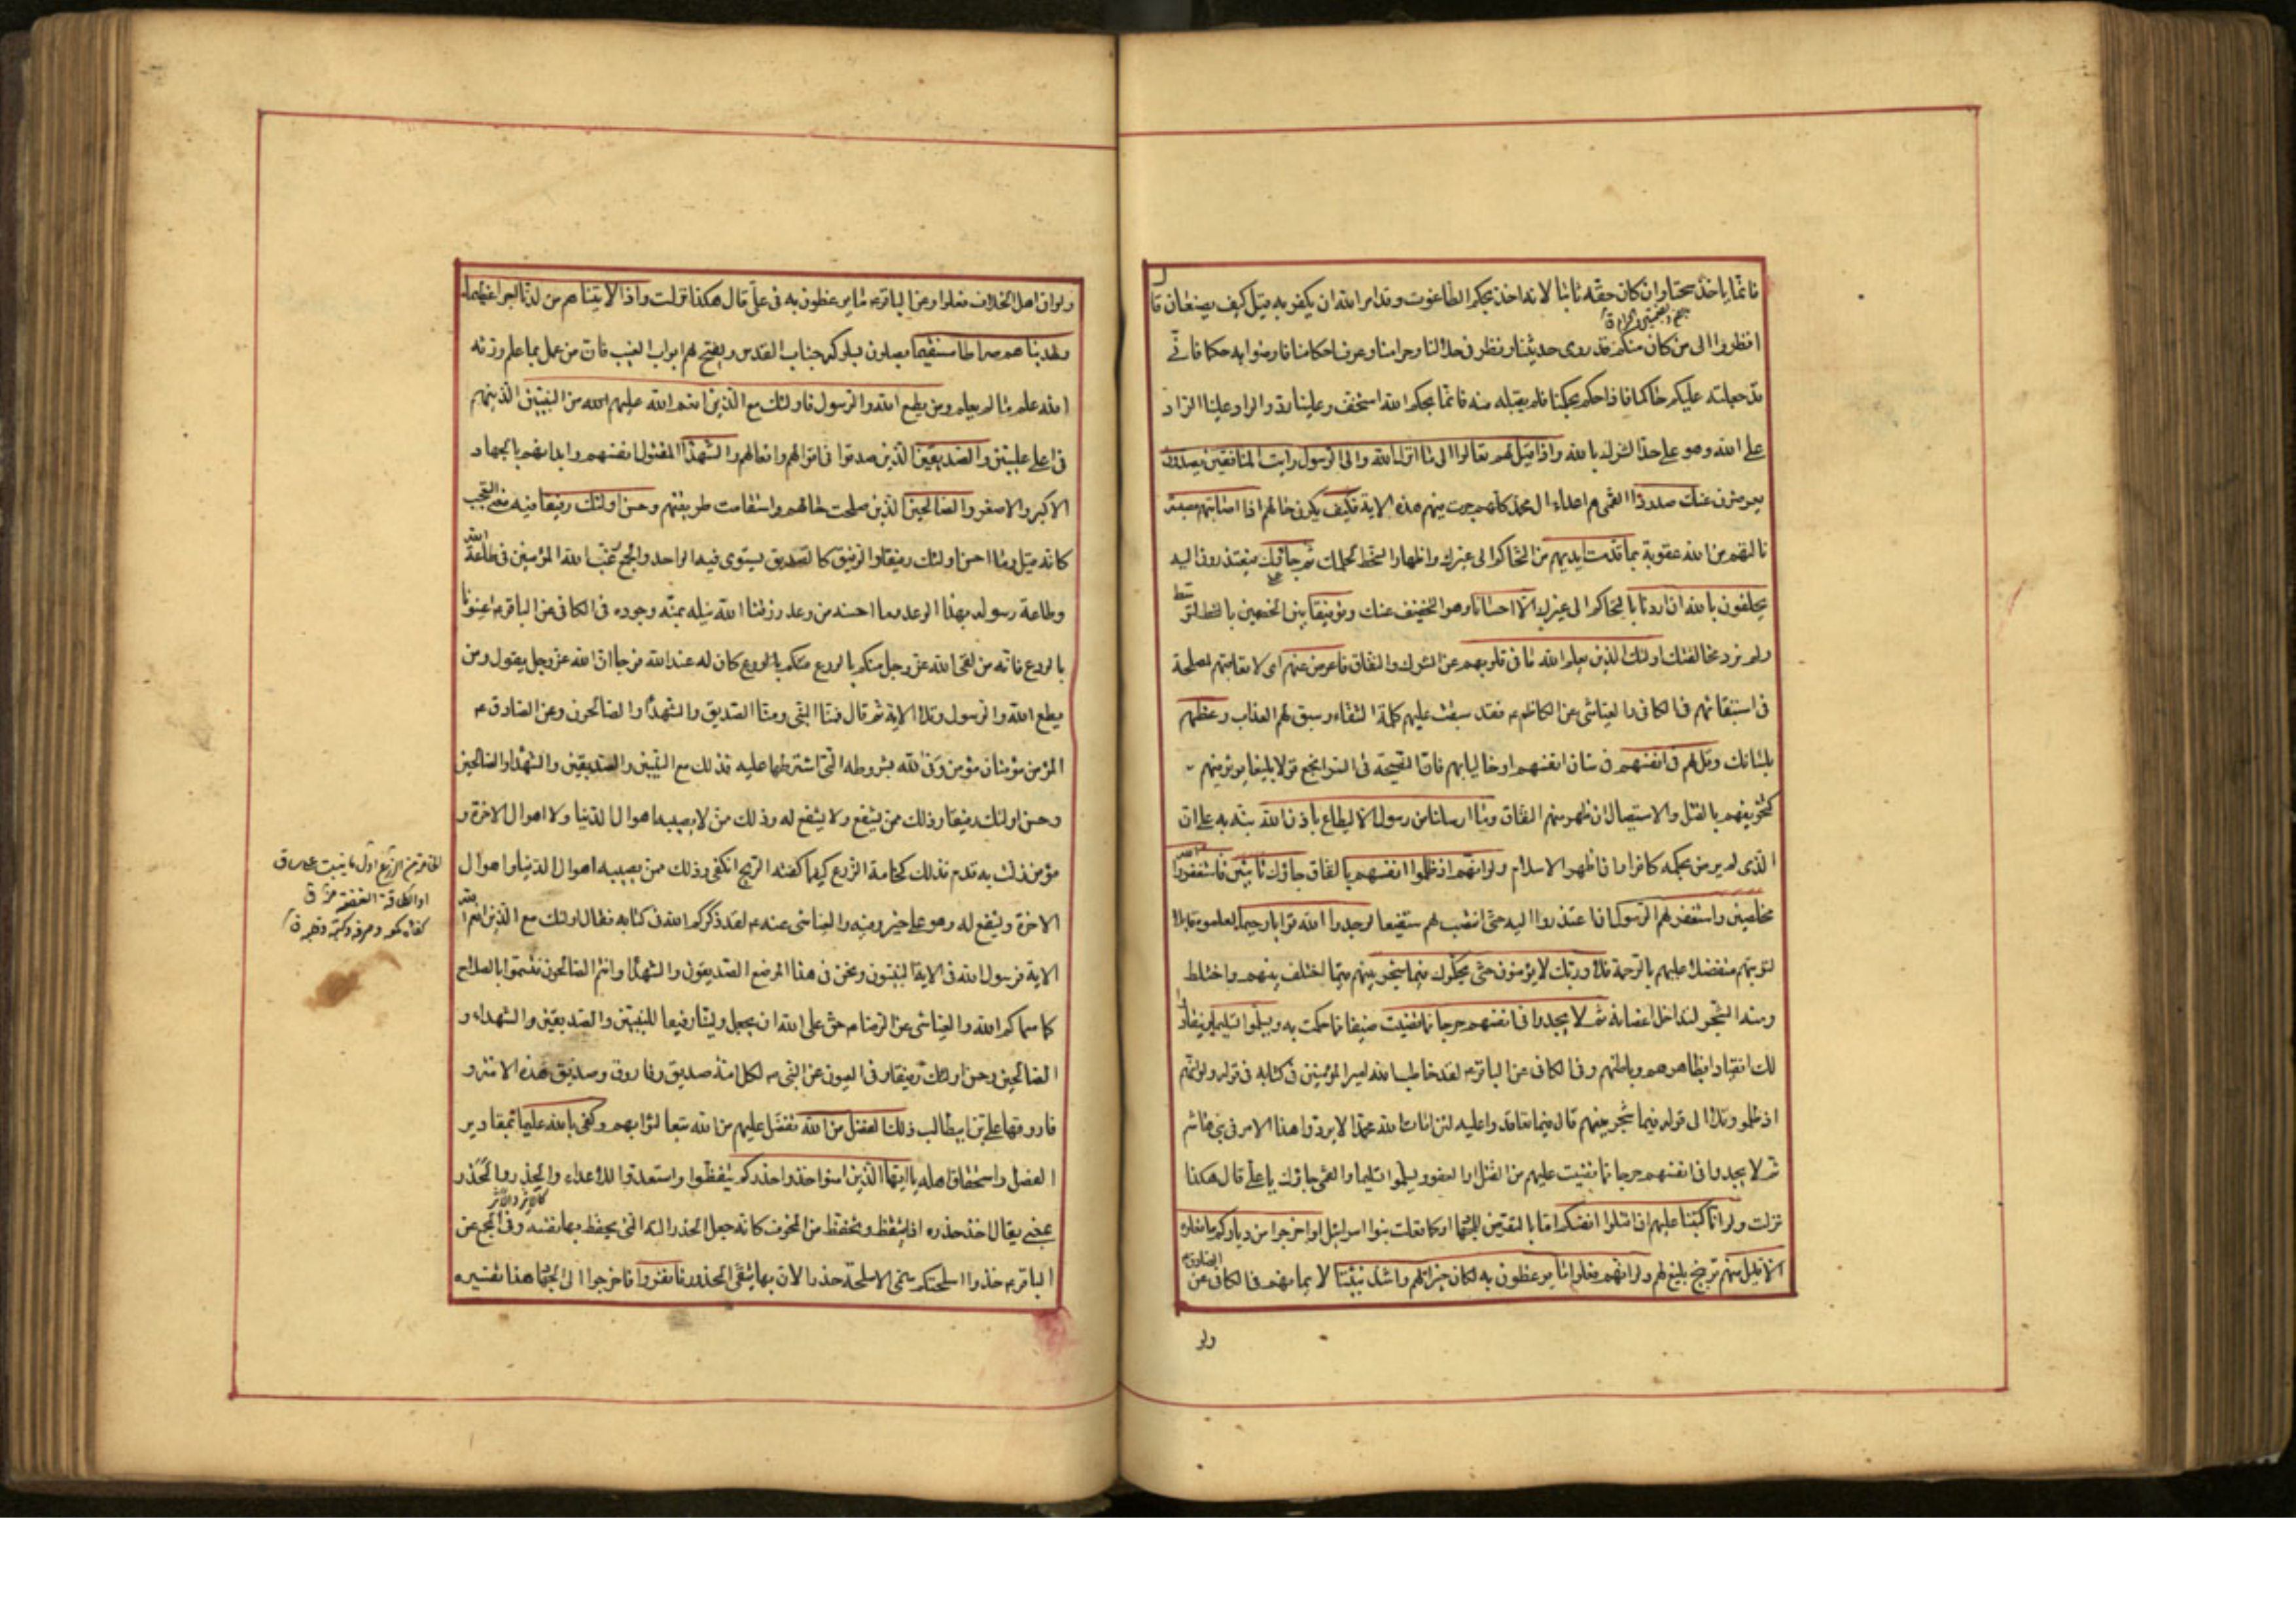 فانما ياخذ سحتا وان كان حقه ثابتا لانه اخذ بحكم الطاغوت وقد امر الله ان يكفر به قيل كيف يصنعان قا
ل
انظروا الى من كان منكم قد روى حديثنا ونظر فى حلالنا وحرامنا وعرف احكامنا فارضوا به حكما فانى
قد جعلته عليكم حاكما فاذا حكم بحكمنا فلم يقبله منه فانما بحكم الله استخف وعلينا رد والراد علينا الراد
على الله وهو على حد الشرك بالله واذا قيل لهم تعالوا الى ما انزل الله والى الرسول رايت المنافقين يصدون
يعرضون عنك صدودا القمى هم اعداء ال محمد كلهم جرت فيهم هذه الاية فكيف يكون حالهم اذا اصابتهم مصيبة
نالتهم من الله عقوبة بما قدمت ايديهم من التحاكم الى غيرك واظهار السخط لحكمك ثم جاؤك فيعتذرون اليك
يحلفون بالله ان اردنا بالتحاكم الى غيرك الا احسانا وهو التخفيف عنك وتوفيقا بين الخصمين بالتوسط
ولم نرد مخالفتك اولئك الذين يعلم الله ما فى قلوبهم من الشرك والنفاق فاعرض عنهم اى لا تعاقبهم لمصلحة
فى استبقائهم فى الكافى والعياشى عن الكاظم ع فقد سبقت عليهم كلمة الشقاء وسبق لهم العذاب وعظهم
بلسانك وقل لهم فى انفسهم فى شان انفسهم او خاليا بهم فان النصيحة فى السر انجع قولا بليغا يوثر فيهم
كتخويفهم بالقتل والاستيصال ان ظهر منهم النفاق وما ارسلنا من رسول الا ليطاع باذن الله نبه به على ان
الذى لم يرض بحكمه كافر وان اظهر الاسلام ولو انهم اذ ظلموا انفسهم بالنفاق جاؤك تائبين فاستغفروا الله
مخلصين واستغفر لهم الرسول بان اعتذروا اليه حتى انتصب لهم شفيعا لوجدوا الله توابا رحيما لعلموه قابلا
لتوبتهم متفضلا عليهم بالرحمة فلا وربك لا يؤمنون حتى يحكموك فيما شجر بينهم فيما اختلف بينهم واختلط
ومنه الشجر لتداخل اغصانه ثم لا يجدوا فى انفسهم حرجا مما قضيت ضيقا مما حكمت به ويسلموا تسليما وينقادوا
لك انقيادا بظاهرهم وباطنهم وفى الكافى عن الباقر ع لقد خاطب الله امير المؤمنين فى كتابه فى قوله ولو انهم
اذ ظلموا وتلا الى قوله فيما شجر بينهم قال فيما تعاقدوا عليه لئن امات الله محمدا لا يردوا هذا الامر فى بنى هاشم
ثم لا يجدوا فى انفسهم حرجا مما قضيت عليهم من القتل او العفو ويسلموا تسليما والقمى جاؤك يا على قال هكذا
نزلت ولو انا كتبنا عليهم ان اقتلوا انفسكم او اخرجوا من دياركم ما فعلوه
الا قليل منهم توبيخ بليغ لهم ولو انهم فعلوا ما يوعظون به لكان خيرا لهم واشد تثبيتا لايمانهم فى الكافى عن الصادق ع
ولو
ولو ان اهل الخلاف فعلوا وعن الباقر ع ما يوعظون به فى على قال هكذا نزلت واذا لاتيناهم من لدنا اجرا عظيما
ولهديناهم صراطا مستقيما يصلون بسلوكه جناب القدس ويفتح لهم ابواب الغيب فان من عمل بما علم ورثه
الله علم ما لم يعلم ومن يطع الله والرسول فاولئك مع الذين انعم الله عليهم من النبيين الذين هم
فى اعلى عليين والصديقين الذين صدقوا فى اقوالهم وافعالهم والشهدا المقتول انفسهم وابدانهم بالجهاد
الاكبر والاصغر والصالحين الذين صلحت حالهم واستقامت طريقتهم وحسن اولئك رفيقا فيه معنى التعجب
كانه قيل وما احسن اولئك رفيقا والرفيق كالصديق يستوى فيه الواحد والجمع رغب الله المؤمنين فى طاعة الله
وطاعة رسوله بهذا الوعد وما احسنه من وعد رزقنا الله نيله بمنه وجوده فى الكافى عن الباقر ع اعينونا
بالورع فانه من لقى الله عز وجل منكم بالورع كان له عند الله فرجا ان الله عز وجل يقول ومن
يطع الله والرسول وتلا الاية ثم قال فمنا النبى ومنا الصديق والشهدا والصالحون وعن الصادق ع
المؤمن مؤمنان مؤمن وفى لله بشروطه التى اشترطها عليه فذلك مع النبيين والصديقين والشهدا والصالحين
وحسن اولئك رفيقا وذلك ممن يشفع ولا يشفع له وذلك ممن لا يصيبه اهوال الدنيا ولا اهوال الاخرة و
مؤمن زلت به قدم فذلك كخامة الزرع كيفما كفته الريح انكفى وذلك ممن يصيبه اهوال الدنيا واهوال
الاخرة ويشفع له وهو على خير وفيه والعياشى عنه ع لقد ذكركم الله فى كتابه فقال اولئك مع الذين انعم الله
الاية فرسول الله فى الاية النبيون ونحن فى هذا الموضع الصديقون والشهدا وانتم الصالحون فتسموا بالصلاح
كما سماكم الله والعياشى عن الرضا ع حق على الله ان يجعل ولينا رفيقا للنبيين والصديقين والشهداء و
الصالحين وحسن اولئك رفيقا وفى العيون عن النبى ص لكل امة صديق وفاروق وصديق هذه الامة و
فاروقها على بن ابيطالب ذلك الفضل من الله تفضل عليهم من الله تبعا لثوابهم وكفى بالله عليما بمقادير
الفضل واستحقاق اهله يا ايها الذين امنوا خذوا حذركم تيقظوا واستعدوا للاعداء والحذر والحذر
كالاثر والاثر
بمعنى يقال اخذ حذره اذا تيقظ وتحفظ من المخوف كانه جعل الحذر الته التى يحفظ بها نفسه وفى المجمع عن
الباقر ع خذوا اسلحتكم سمى الاسلحة حذرا لان بها يتقى الحذر فانفروا فاخرجوا الى الجهاد هذا تفسيره
الخامة من الزرع اول ما ينبت على ساق
او الطاقة الغضة منه ق